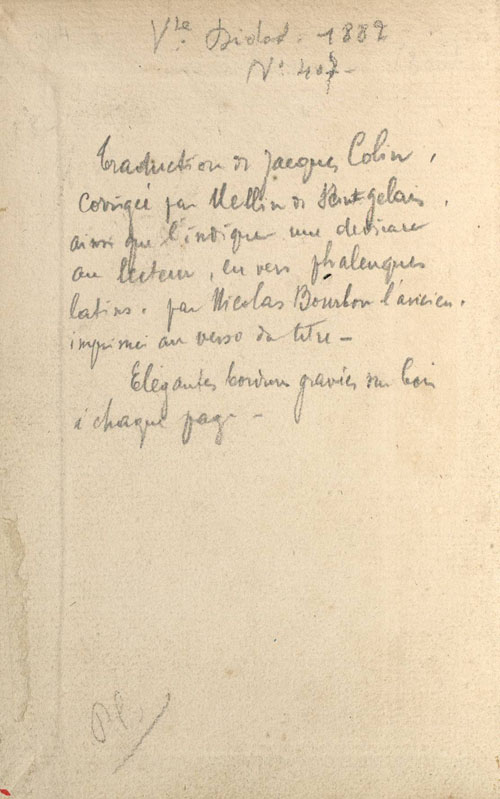 Vte Didot. 1882
No 407 -
Traduction de Jacques Colin,
corrigée par Mellin de Saint-gelais,
ainsi que l'indique une dédicace
au lecteur, en vers phaleuques
latins, par Nicolas Bourbon l'ancien,
imprimée au verso du titre -
Elégantes bordures gravées sur bois
à chaque page -